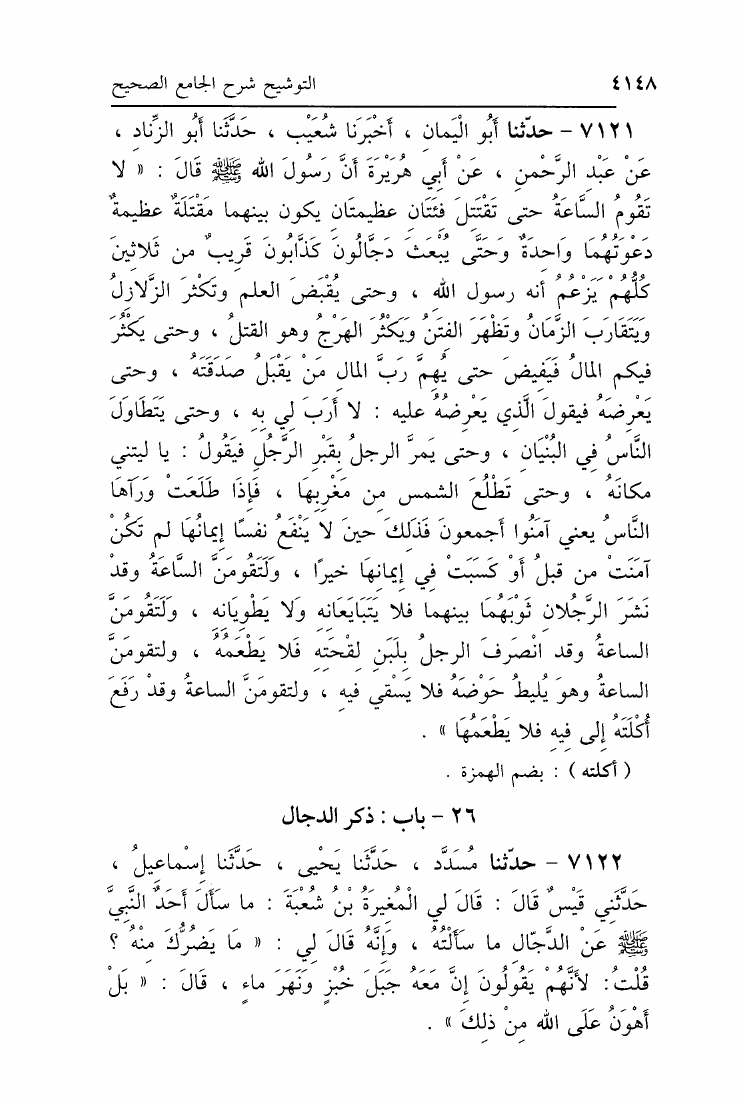 ٤١٤٨ التوشيح شرح الجامع الصحيح
٧١٢١ – حدّثنا أَبُو الْيَمانِ ، أَخْبَرَنا شُعَيْب ، حَدَّثَنا أَبُو الزِّنادِ ،
عَنْ عَبْدِ الرَّحْمنِ ، عَنْ أَبِي هُرَيْرَةَ أَنَّ رَسُولَ الله ﷺ قَالَ : « لا
تَقُومُ السَّاعَةُ حتى تَقْتَتِلَ فِئَتَانِ عظيمتَانِ يكون بينهما مَقْتَلَةٌ عظيمةٌ
دَعْوَتُهُمَا وَاحِدَةٌ وَحَتَّى يُبْعَثَ دَجَّالُونَ كَذَّابُونَ قَرِيبٌ من ثَلاثينَ
كُلُّهُمْ يَزْعُمُ أنه رسول الله ، وحتى يُقْبَضَ العلم وتَكْثرَ الزَّلازِلُ
وَيَتَقَارَبَ الزَّمَانُ وتَظْهَرَ الفتَنُ وَيَكْثُرَ الهَرْجُ وهو القتلُ ، وحتى يَكْثُرَ
فيكم المالُ فَيَفِيضَ حتى يُهِمَّ رَبَّ المالِ مَنْ يَقْبَلُ صَدَقَتَهُ ، وحتى
يَعْرِضَهُ فيقولَ الَّذي يَعْرِضُهُ عليه : لا أَرَبَ لي بِهِ ، وحتى يَتَطَاوَلَ
النَّاسُ فِي البُنْيَانِ ، وحتى يَمرَّ الرجلُ بِقَبْرِ الرَّجُلِ فَيَقُولُ : يا ليتني
مكانَهُ ، وحتى تَطْلُعَ الشمس مِن مَغْرِبِهَا ، فَإِذَا طَلَعَتْ وَرَآهَا
النَّاسُ يعني آمَنُوا أجمعونَ فَذلِكَ حينَ لا يَنْفَعُ نفسًا إِيمانُهَا لم تَكُنْ
آمَنَتْ من قبلُ أَوْ كَسَبَتْ فِي إِيمانِهَا خيرًا ، وَلَتَقُومَنَّ السَّاعَةُ وقد
نَشَرَ الرَّجُلانِ ثَوْبَهُمَا بينهما فلا يَتَبَايَعَانِهِ وَلا يَطْوِيَانِهِ ، وَلَتَقُومَنَّ
الساعةُ وقد انْصَرفَ الرجلُ بِلَبَنِ لِقْحَتِهِ فَلا يَطْعَمُهُ ، ولتقومَنَّ
الساعةُ وهوَ يُليطُ حَوْضَهُ فلا يَسْقي فيه ، ولتقومَنَّ الساعةُ وقدْ رَفَعَ
أُكْلَتَهُ إلى فِيهِ فلا يَطْعَمُهَا » .
( أكلته ) : بضم الهمزة .
٢٦ – باب : ذكر الدجال
٧١٢٢ – حدّثنا مُسَدَّد ، حَدَّثَنا يَحْيى ، حَدَّثَنا إِسْماعيلُ ،
حَدَّثَنِي قَيْسٌ قَالَ : قَالَ لي الْمُغِيرَةُ بْنُ شُعْبَةَ : ما سَأَلَ أَحَدٌ النَّبِيَّ
ﷺ عَنْ الدَّجّالِ ما سَأَلْتُهُ ، وَإِنَّهُ قَالَ لي : « مَا يَضُرُّكَ مِنْهُ ؟
قُلْتُ: لأَنَّهُمْ يَقُولُونَ إِنَّ مَعَهُ جَبَلَ خُبْزٍ وَنَهَرَ ماءٍ ، قَالَ : « بَلْ
أَهْوَنُ عَلَى الله مِنْ ذلِكَ » .